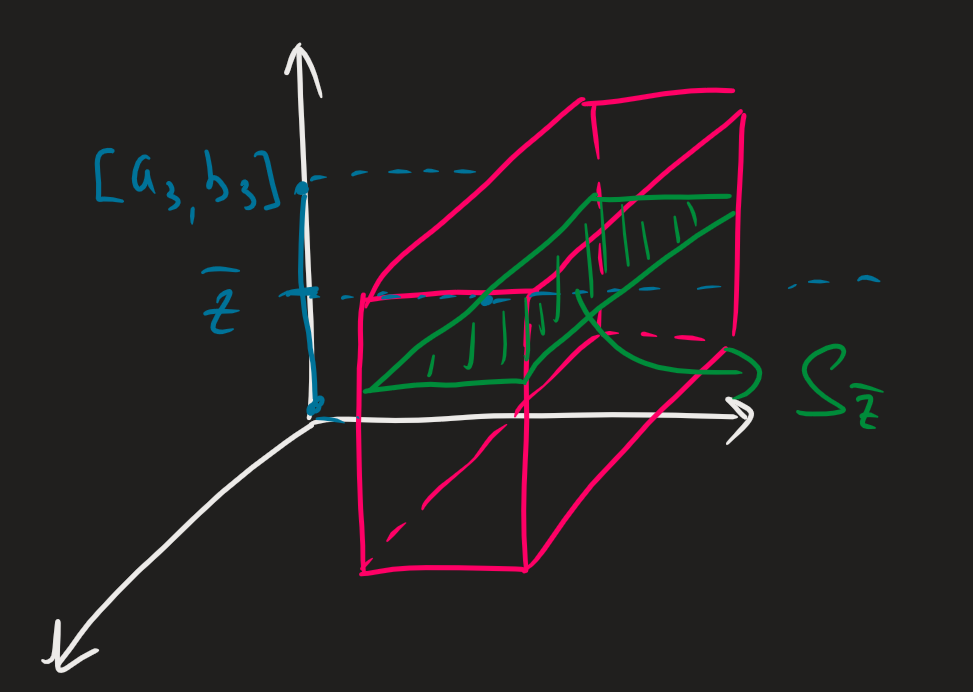 [a₃, b₃]
z̄
S_z̄